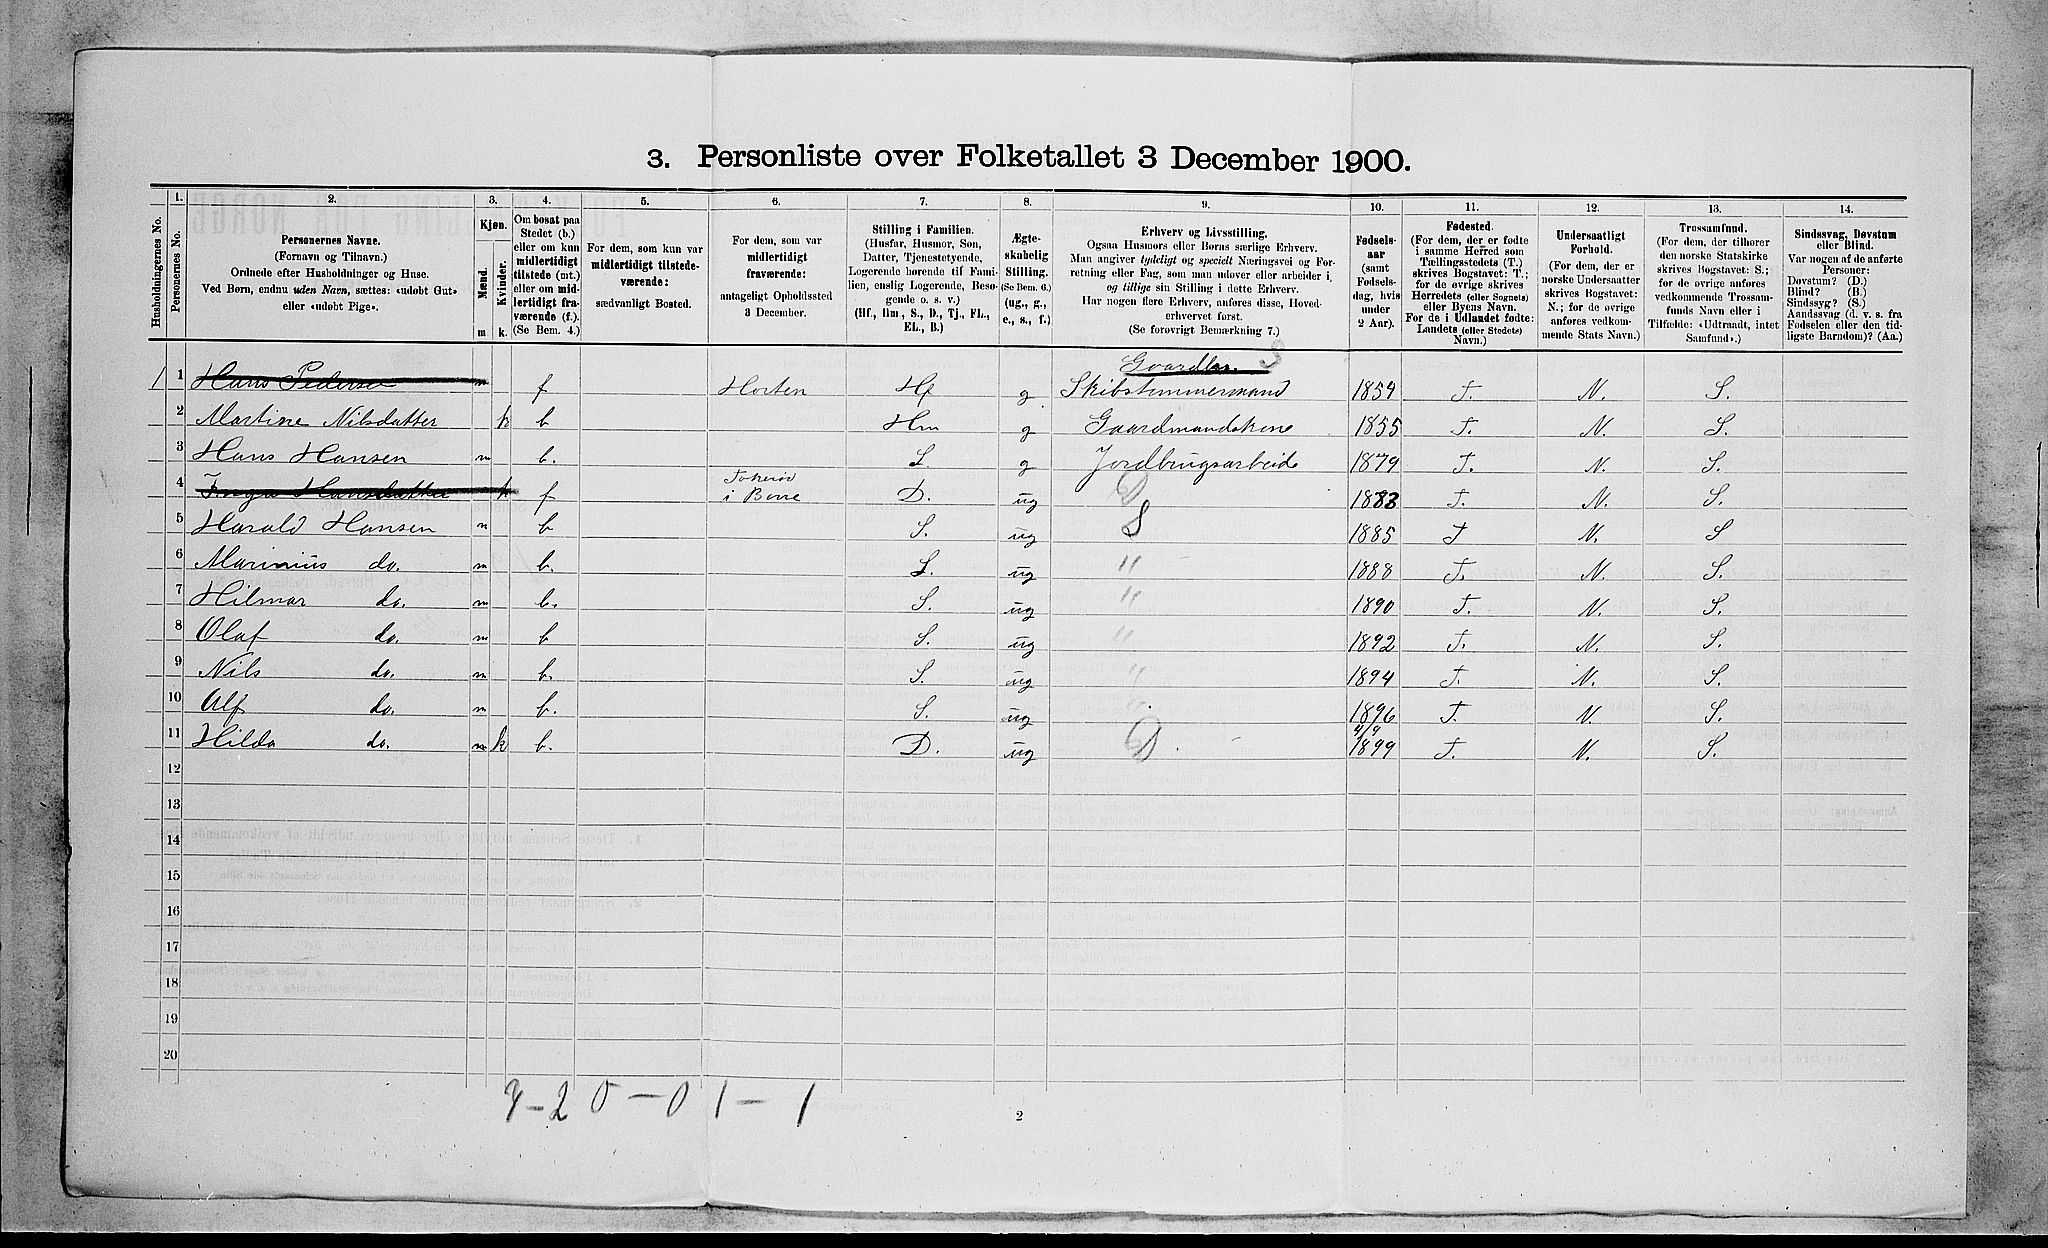 3. Personliste over Folketallet 3 December 1900.
Husholdningernes No.
1. Personernes No.
2. Personernes Navne.
(Fornavn og Tilnavn.)
Ordnede efter Husholdninger og Huse.
Ved Børn, endnu uden Navn, sættes: «udøbt Gut»
eller «udøbt Pige».
3. Kjøn.
Mænd. Kvinder.
m k.
4. Om bosat paa
Stedet (b.)
eller om kun
midlertidigt
tilstede (mt.)
eller om mid-
lertidigt fra-
værende (f.).
(Se Bem. 4.)
5. For dem, som kun var
midlertidigt tilstede-
værende:
sædvanligt Bosted.
6. For dem, som var
midlertidigt
fraværende:
antageligt Opholdssted
3 December.
7. Stilling i Familien.
(Husfar, Husmor, Søn,
Datter, Tjenestetyende,
Logerende hørende til Fami-
lien, enslig Logerende, Besø-
gende o. s. v.)
(Hf., Hm, S., D., Tj., FL.,
EL., B.)
8. Ægte-
skabelig
Stilling.
(Se Bem. 6.)
(ug., g.,
e., s., f.)
9. Erhverv og Livsstilling.
Ogsaa Husmors eller Børns særlige Erhverv.
Man angiver tydeligt og specielt Næringsvei og For-
retning eller Fag, som man udøver eller arbeider i,
og tillige sin Stilling i dette Erhverv.
Har nogen flere Erhverv, anføres disse, Hoved-
erhvervet først.
(Se forøvrigt Bemærkning 7.)
10. Fødsels-
aar
(samt
Fødsels-
dag, hvis
under
2 Aar).
11. Fødested.
(For dem, der er fødte
i samme Herred som
Tællingsstedets (T.)
skrives Bogstavet: T.;
for de øvrige skrives
Herredets (eller Sognets)
eller Byens Navn.
For de i Udlandet fødte:
Landets (eller Stedets)
Navn.)
12. Undersaatligt
Forhold.
(For dem, der er
norske Undersaatter
skrives Bogstavet:
N.; for de øvrige
anføres vedkom-
mende Stats Navn.)
13. Trossamfund.
(For dem, der tilhører
den norske Statskirke
skrives Bogstavet: S.;
for de øvrige anføres
vedkommende Trossam-
funds Navn eller i
Tilfælde: «Udtraadt, intet
Samfund».)
14. Sindssvag, Døvstum
eller Blind.
Var nogen af de anførte
Personer:
Døvstum? (D.)
Blind? (B.)
Sindssyg? (S.)
Aandssvag (d. v. s. fra
Fødselen eller den tid-
ligste Barndom)? (Aa.)
1 Hans Pedersen m f Horten Hf g Skibstømmermand 1859 T. N. S.
2 Martine Nilsdatter k b Hm g Gaardmandskone 1855 T. N. S.
3 Hans Hansen m b. S. g Jordbrugsarbeide 1879 T. N. S.
4 Inga Hansdatter k f i Borre D. ug D 1883 T. N. S.
5 Harald Hansen m b S. ug S 1885 T N. S
6 Marinius do. m b. S. ug " 1888 T. N. S.
7 Hilmar do. m b. S. ug " 1890 T. N. S.
8 Olaf do. m b S. ug " 1892 T. N. S.
9 Nils do. m b. S. ug " 1894 T. N. S.
10 Alf do. m b. S. ug " 1896 T. N. S.
11 Hilda do. k b. D. ug D. 1899 T. N. S.
12
13
14
15
16
17
18
19
20
2